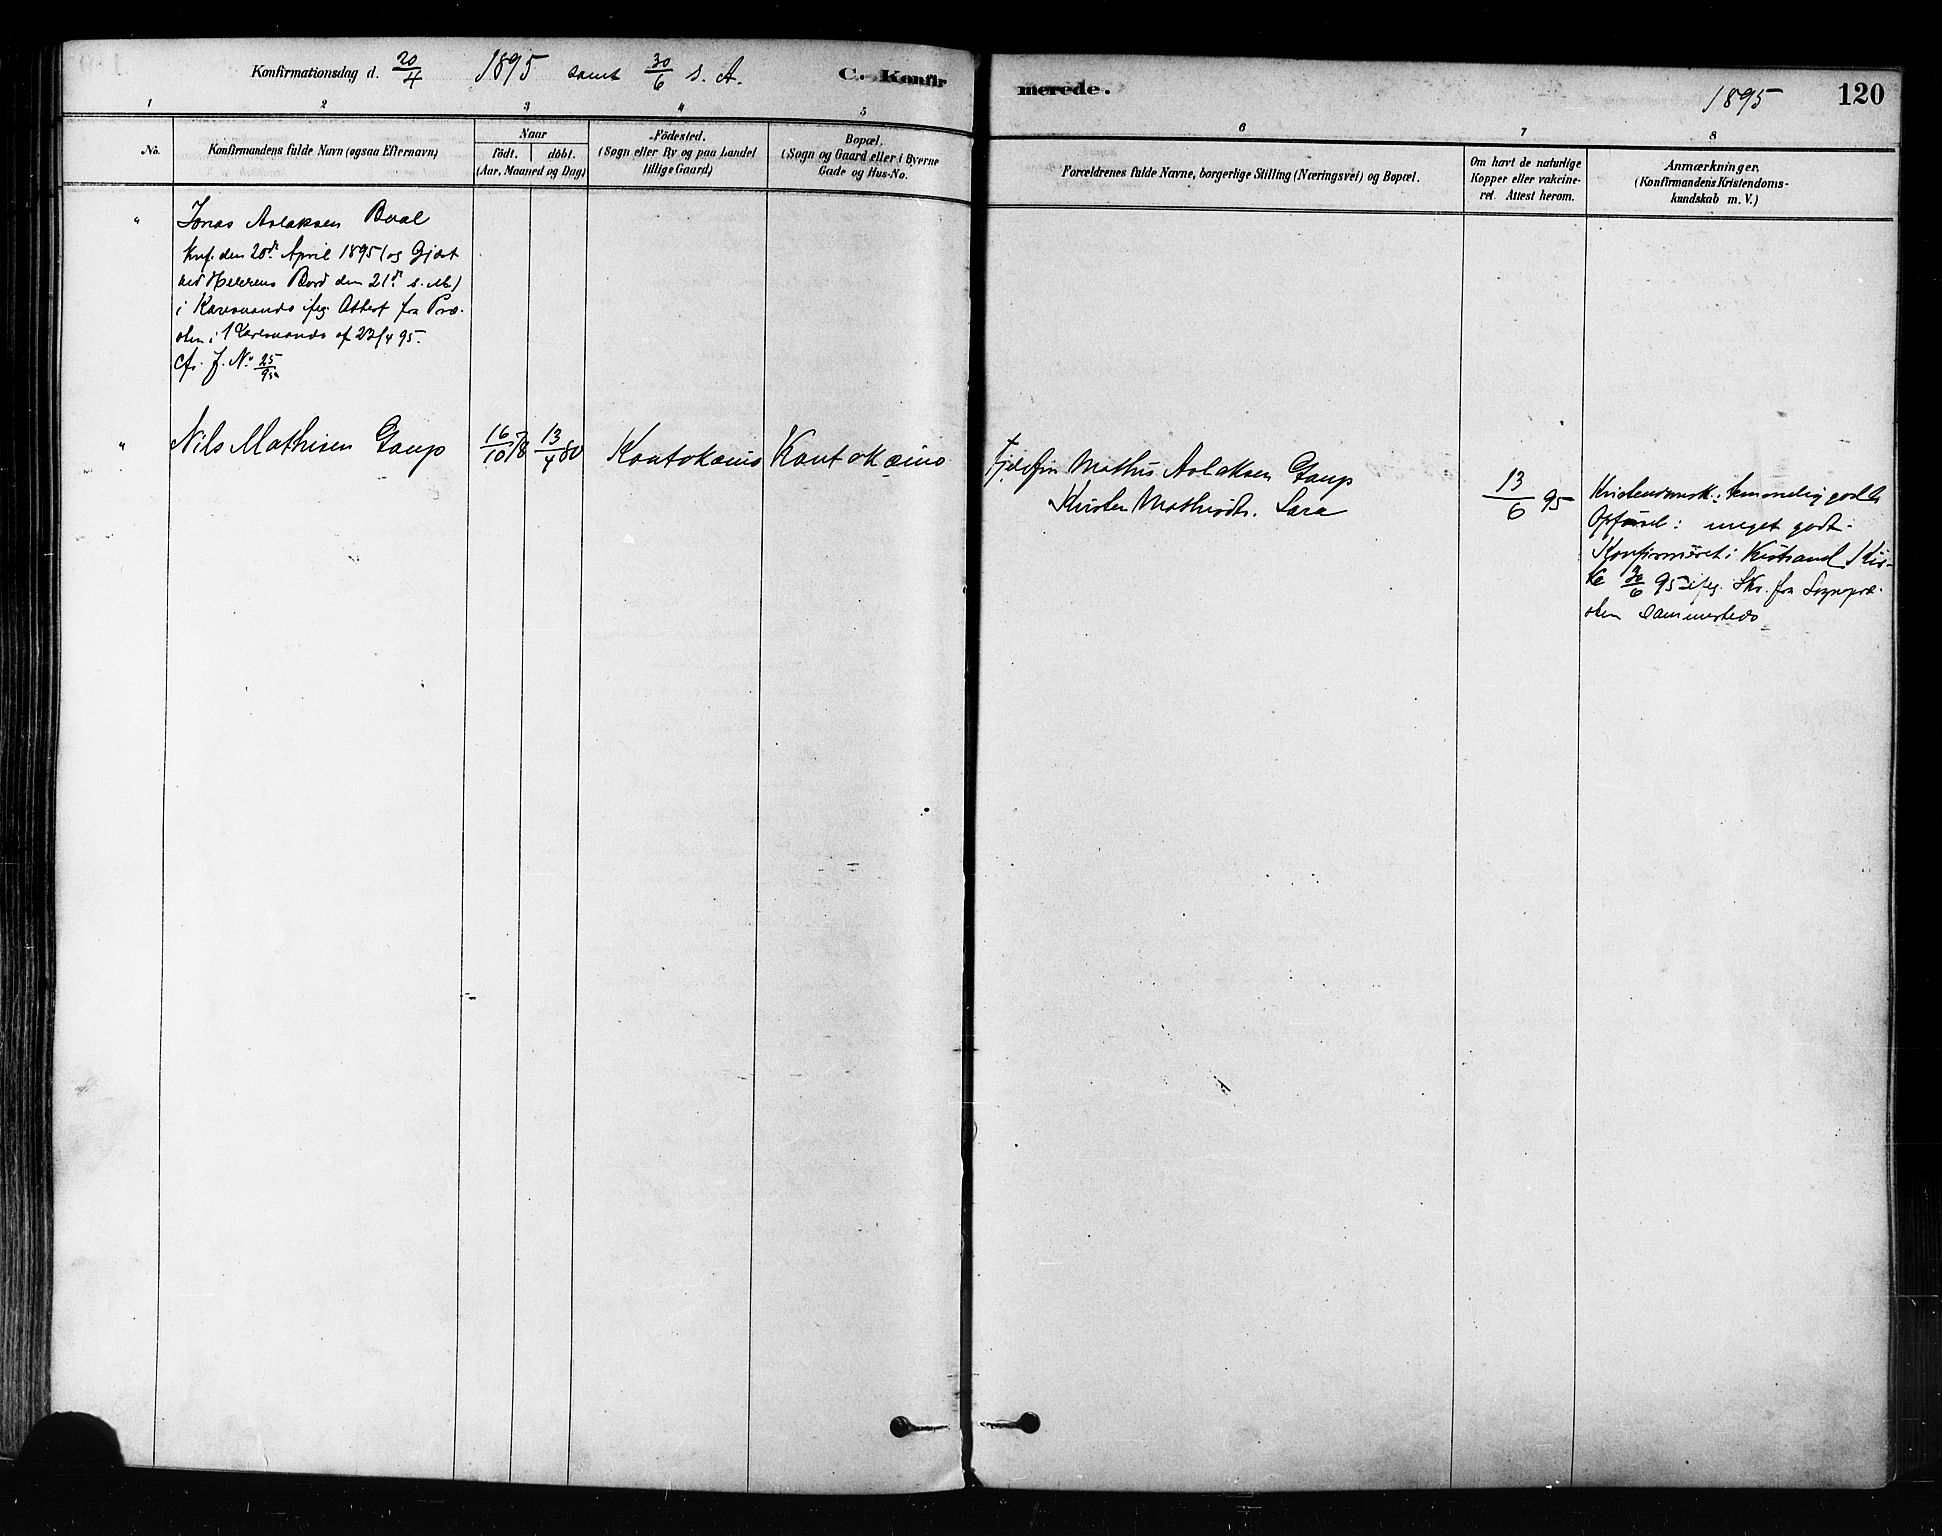 Konfirmationsdag d. 20/4 1895 samt 30/6 s. A. C. Konfir
merede. 1895 120
1 2 3 4 5
6 7 8
No.
Konfirmandens fulde Navn (ogsaa Efternavn)
Naar
födt. döbt.
(Aar, Maaned og Dag)
Födested.
(Sogn eller By og paa Landet
tillige Gaard)
Bopæl.
(Sogn og Gaard eller i Byerne
Gade og Hus-No.
Forældrenes fulde Navne, borgerlige Stilling (Næringsvei) og Bopæl.
Om havt de naturlige
Kopper eller vakcine-
ret. Attest herom.
Anmærkninger,
(Konfirmandens Kristendoms-
kundskab m. V.)
" Jonas Aslaksen
Knf. den 20de April 1895 (og Gjest
ved Herrens Bord den 21de s. M.)
i Karesuando iføg. Attest fra Præ-
sten i Karesuando af 23/4 95.
cfr. J. No 25/95
" Nils Mathisen Gaup 16/10 78 13/4 80 Kautokæino Kautokæino
Fjeldfin Mathis Aslaksen Gaup
Kirsten Mathisdtr. Sara
13/6 95
Kristendomsk.: temmelig godt
Opførsel: meget godt.
Konfirmeret i Kistrand Kir-
ke 30/6 95 iføg. Skr. fra Sognepræ-
sten sammesteds